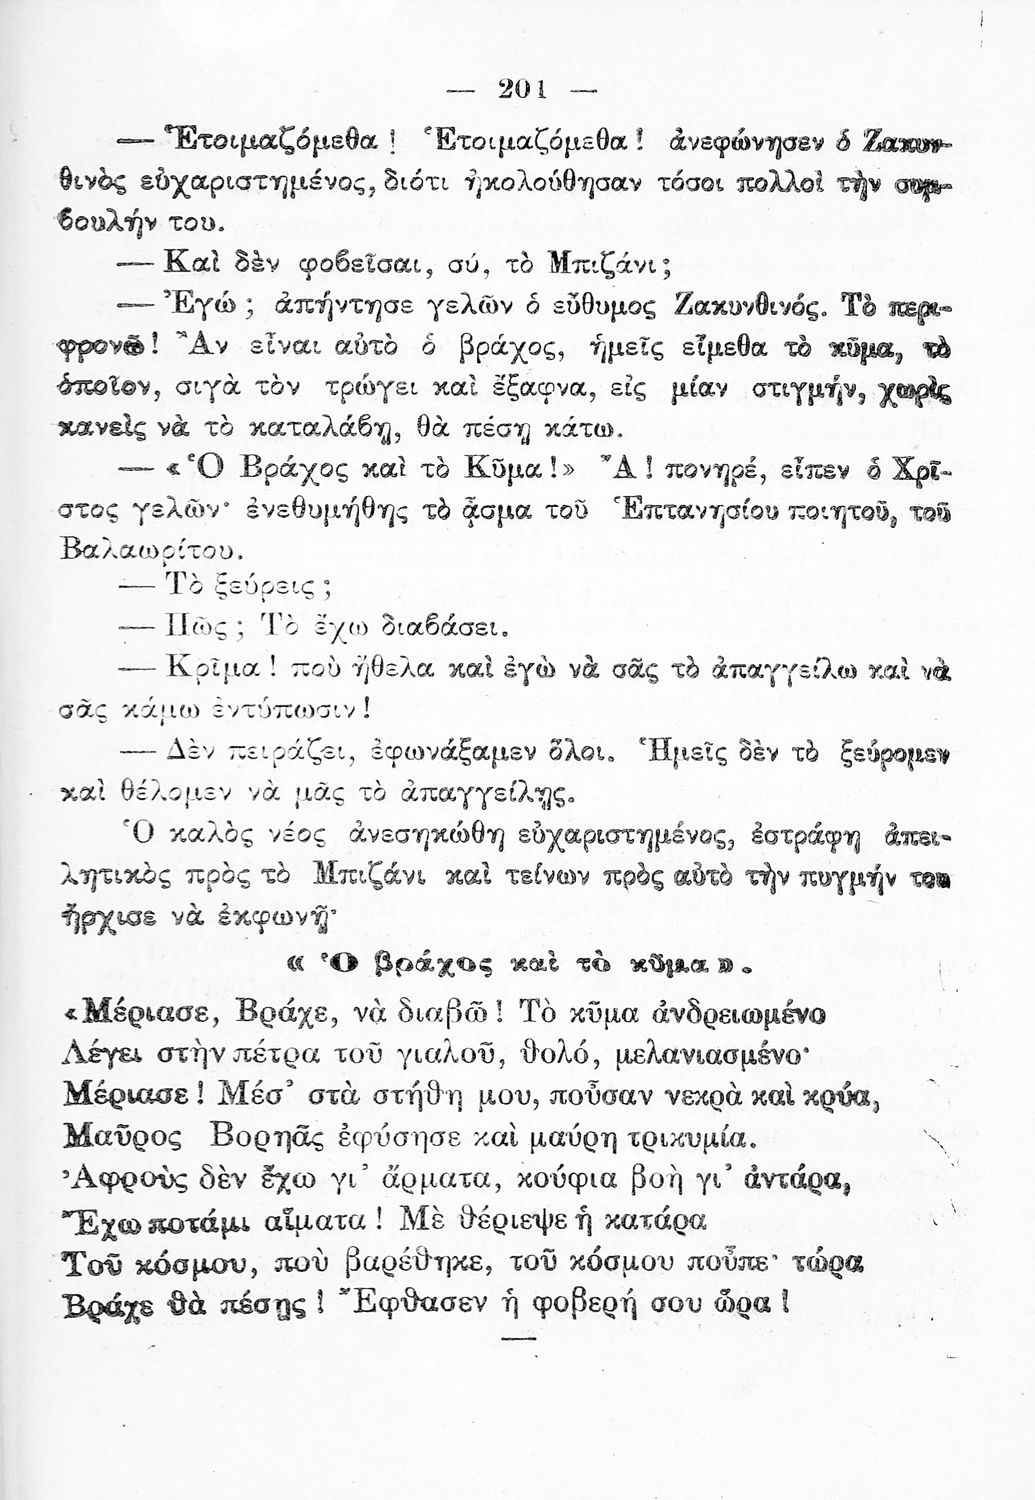 — 201 —
— Ἑτοιμαζόμεθα ! Ἑτοιμαζόμεθα ! ἀνεφώνησεν ὁ Ζακυν-
θινὸς εὐχαριστημένος, διότι ἠκολούθησαν τόσοι πολλοὶ τὴν συμ-
βουλήν του.
— Καὶ δὲν φοβεῖσαι, σύ, τὸ Μπιζάνι ;
— Ἐγώ ; ἀπήντησε γελῶν ὁ εὔθυμος Ζακυνθινός. Τὸ περι-
φρονῶ ! Ἂν εἶναι αὐτὸ ὁ βράχος, ἡμεῖς εἴμεθα τὸ κῦμα, τὸ
ὁποῖον, σιγὰ τὸν τρώγει καὶ ἔξαφνα, εἰς μίαν στιγμήν, χωρὶς
κανεὶς νὰ τὸ καταλάβῃ, θὰ πέσῃ κάτω.
— «Ὁ Βράχος καὶ τὸ Κῦμα !» Ἄ ! πονηρέ, εἶπεν ὁ Χρῖ-
στος γελῶν· ἐνεθυμήθης τὸ ᾆσμα τοῦ Ἑπτανησίου ποιητοῦ, τοῦ
Βαλαωρίτου.
— Τὸ ξεύρεις ;
— Πῶς ; Τὸ ἔχω διαβάσει.
— Κρῖμα ! ποὺ ἤθελα καὶ ἐγὼ νὰ σᾶς τὸ ἀπαγγείλω καὶ νὰ
σᾶς κάμω ἐντύπωσιν !
— Δὲν πειράζει, ἐφωνάξαμεν ὅλοι. Ἡμεῖς δὲν τὸ ξεύρομεν
καὶ θέλομεν νὰ μᾶς τὸ ἀπαγγείλῃς.
Ὁ καλὸς νέος ἀνεσηκώθη εὐχαριστημένος, ἐστράφη ἀπει-
λητικὸς πρὸς τὸ Μπιζάνι καὶ τείνων πρὸς αὐτὸ τὴν πυγμήν του
ἤρχισε νὰ ἐκφωνῇ·
« Ὁ βράχος καὶ τὸ κῦμα ».
«Μέριασε, Βράχε, νὰ διαβῶ ! Τὸ κῦμα ἀνδρειωμένο
Λέγει στὴν πέτρα τοῦ γιαλοῦ, θολό, μελανιασμένο·
Μέριασε ! Μέσ’ στὰ στήθη μου, ποὖσαν νεκρὰ καὶ κρύα,
Μαῦρος Βορηᾶς ἐφύσησε καὶ μαύρη τρικυμία.
Ἀφροὺς δὲν ἔχω γι’ ἄρματα, κούφια βοὴ γι’ ἀντάρα,
Ἔχω ποτάμι αἵματα ! Μὲ θέριεψε ἡ κατάρα
Τοῦ κόσμου, ποὺ βαρέθηκε, τοῦ κόσμου ποὖπε· τώρα
Βράχε θὰ πέσῃς ! Ἔφθασεν ἡ φοβερή σου ὥρα !